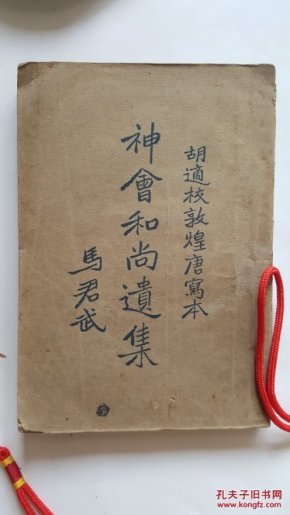 胡適校敦煌唐寫本
神會和尚遺集
馬君武
孔夫子旧书网
www.kongfz.com